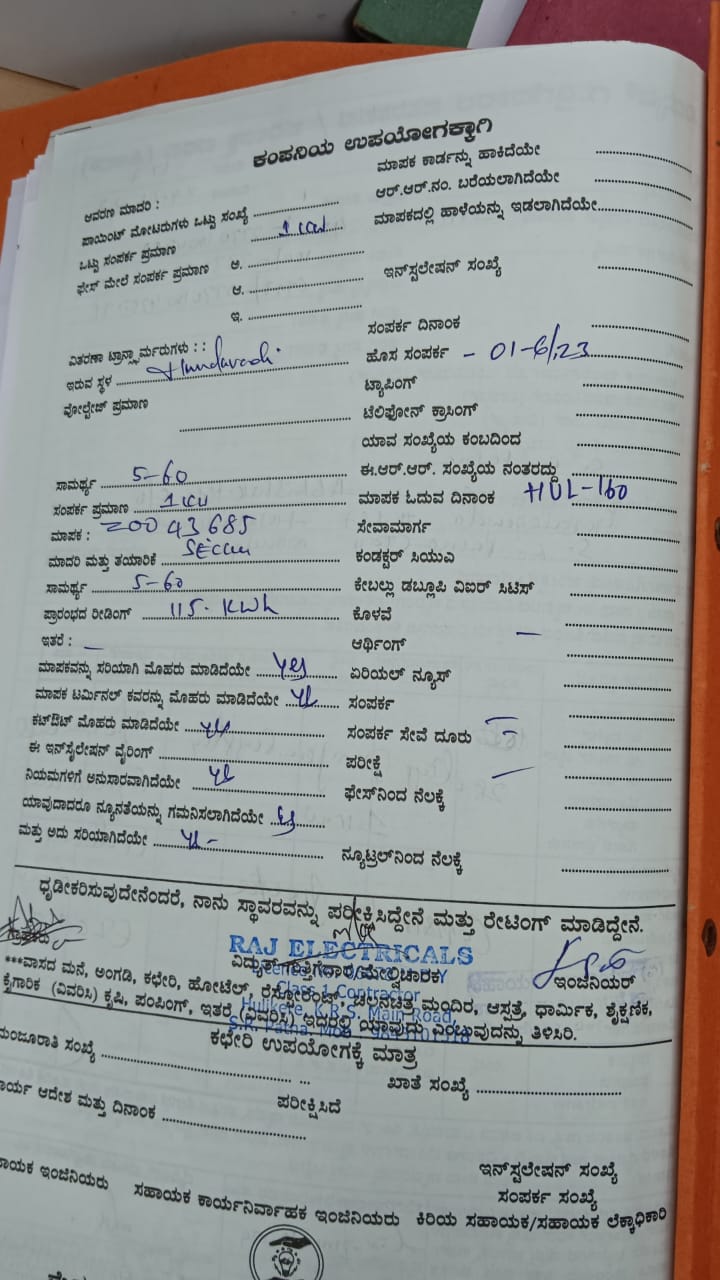 ಕಂಪನಿಯ ಉಪಯೋಗಕ್ಕಾಗಿ
ಆವರಣ ಮಾದರಿ :
ಪಾಯಿಂಟ್ ಮೋಟರುಗಳು ಒಟ್ಟು ಸಂಖ್ಯೆ
ಒಟ್ಟು ಸಂಪರ್ಕ ಪ್ರಮಾಣ 1 KW
ಫೇಸ್ ಮೇಲೆ ಸಂಪರ್ಕ ಪ್ರಮಾಣ ಅ.
ಆ.
ಇ.
ವಿತರಣಾ ಟ್ರಾನ್ಸ್ಫಾರ್ಮರುಗಳು : :
ಇರುವ ಸ್ಥಳ
ವೋಲ್ಟೇಜ್ ಪ್ರಮಾಣ
ಸಾಮರ್ಥ್ಯ 5-60
ಸಂಪರ್ಕ ಪ್ರಮಾಣ 1 KW
ಮಾಪಕ : 20043685
ಮಾದರಿ ಮತ್ತು ತಯಾರಿಕೆ
ಸಾಮರ್ಥ್ಯ 5-60
ಪ್ರಾರಂಭದ ರೀಡಿಂಗ್ 115. KWh
ಇತರೆ : —
ಮಾಪಕವನ್ನು ಸರಿಯಾಗಿ ಮೊಹರು ಮಾಡಿದೆಯೇ yes
ಮಾಪಕ ಟರ್ಮಿನಲ್ ಕವರನ್ನು ಮೊಹರು ಮಾಡಿದೆಯೇ yes
ಕಟ್‌ಔಟ್ ಮೊಹರು ಮಾಡಿದೆಯೇ yes
ಈ ಇನ್‌ಸ್ಟಲೇಷನ್ ವೈರಿಂಗ್
ನಿಯಮಗಳಿಗೆ ಅನುಸಾರವಾಗಿದೆಯೇ yes
ಯಾವುದಾದರೂ ನ್ಯೂನತೆಯನ್ನು ಗಮನಿಸಲಾಗಿದೆಯೇ yes
ಮತ್ತು ಅದು ಸರಿಯಾಗಿದೆಯೇ yes -
ಮಾಪಕ ಕಾರ್ಡನ್ನು ಹಾಕಿದೆಯೇ
ಆರ್.ಆರ್.ನಂ. ಬರೆಯಲಾಗಿದೆಯೇ
ಮಾಪಕದಲ್ಲಿ ಹಾಳೆಯನ್ನು ಇಡಲಾಗಿದೆಯೇ
ಇನ್‌ಸ್ಟಲೇಷನ್ ಸಂಖ್ಯೆ
ಸಂಪರ್ಕ ದಿನಾಂಕ
ಹೊಸ ಸಂಪರ್ಕ - 01-6/23
ಟ್ಯಾಪಿಂಗ್
ಟೆಲಿಫೋನ್ ಕ್ರಾಸಿಂಗ್
ಯಾವ ಸಂಖ್ಯೆಯ ಕಂಬದಿಂದ
ಈ.ಆರ್.ಆರ್. ಸಂಖ್ಯೆಯ ನಂತರದ್ದು
ಮಾಪಕ ಓದುವ ದಿನಾಂಕ HUL-160
ಸೇವಾಮಾರ್ಗ
ಕಂಡಕ್ಟರ್ ಸಿಯುವಿ
ಕೇಬಲ್ಲು ಡಬ್ಲೂಪಿ ವಿಐರ್ ಸಿಟಿಸ್
ಕೊಳವೆ
ಆರ್ಥಿಂಗ್ —
ಏರಿಯಲ್ ನ್ಯೂಸ್
ಸಂಪರ್ಕ
ಸಂಪರ್ಕ ಸೇವೆ ದೂರು
ಪರೀಕ್ಷೆ
ಫೇಸ್‌ನಿಂದ ನೆಲಕ್ಕೆ
ನ್ಯೂಟ್ರಲ್‌ನಿಂದ ನೆಲಕ್ಕೆ
ಧೃಡೀಕರಿಸುವುದೇನೆಂದರೆ, ನಾನು ಸ್ಥಾವರವನ್ನು ಪರೀಕ್ಷಿಸಿದ್ದೇನೆ ಮತ್ತು ರೇಟಿಂಗ್ ಮಾಡಿದ್ದೇನೆ.
RAJ ELECTRICALS
ವಿದ್ಯುತ್ ಗುತ್ತಿಗೆದಾರ/ಮೇಲ್ವಿಚಾರಕ ಇಂಜಿನಿಯರ್
Class 1 Contractor
Hulikere, K.R.S. Main Road
***ವಾಸದ ಮನೆ, ಅಂಗಡಿ, ಕಛೇರಿ, ಹೋಟೆಲ್, ರೆಸ್ಟೋರೆಂಟ್, ಚಲನಚಿತ್ರ ಮಂದಿರ, ಆಸ್ಪತ್ರೆ, ಧಾರ್ಮಿಕ, ಶೈಕ್ಷಣಿಕ,
ಕೈಗಾರಿಕ (ವಿವರಿಸಿ) ಕೃಷಿ, ಪಂಪಿಂಗ್, ಇತರೆ (ವಿವರಿಸಿ) ಇದರಲ್ಲಿ ಯಾವುದು ಎಂಬುವುದನ್ನು ತಿಳಿಸಿರಿ.
ಕಛೇರಿ ಉಪಯೋಗಕ್ಕೆ ಮಾತ್ರ
ಮಂಜೂರಾತಿ ಸಂಖ್ಯೆ ಖಾತೆ ಸಂಖ್ಯೆ
ಆದೇಶ ಮತ್ತು ದಿನಾಂಕ ಪರೀಕ್ಷಿಸಿದೆ
ಇನ್‌ಸ್ಟಲೇಷನ್ ಸಂಖ್ಯೆ
ಸಂಪರ್ಕ ಸಂಖ್ಯೆ
ಇಂಜಿನಿಯರು ಸಹಾಯಕ ಕಾರ್ಯನಿರ್ವಾಹಕ ಇಂಜಿನಿಯರು ಕಿರಿಯ ಸಹಾಯಕ/ಸಹಾಯಕ ಲೆಕ್ಕಾಧಿಕಾರಿ